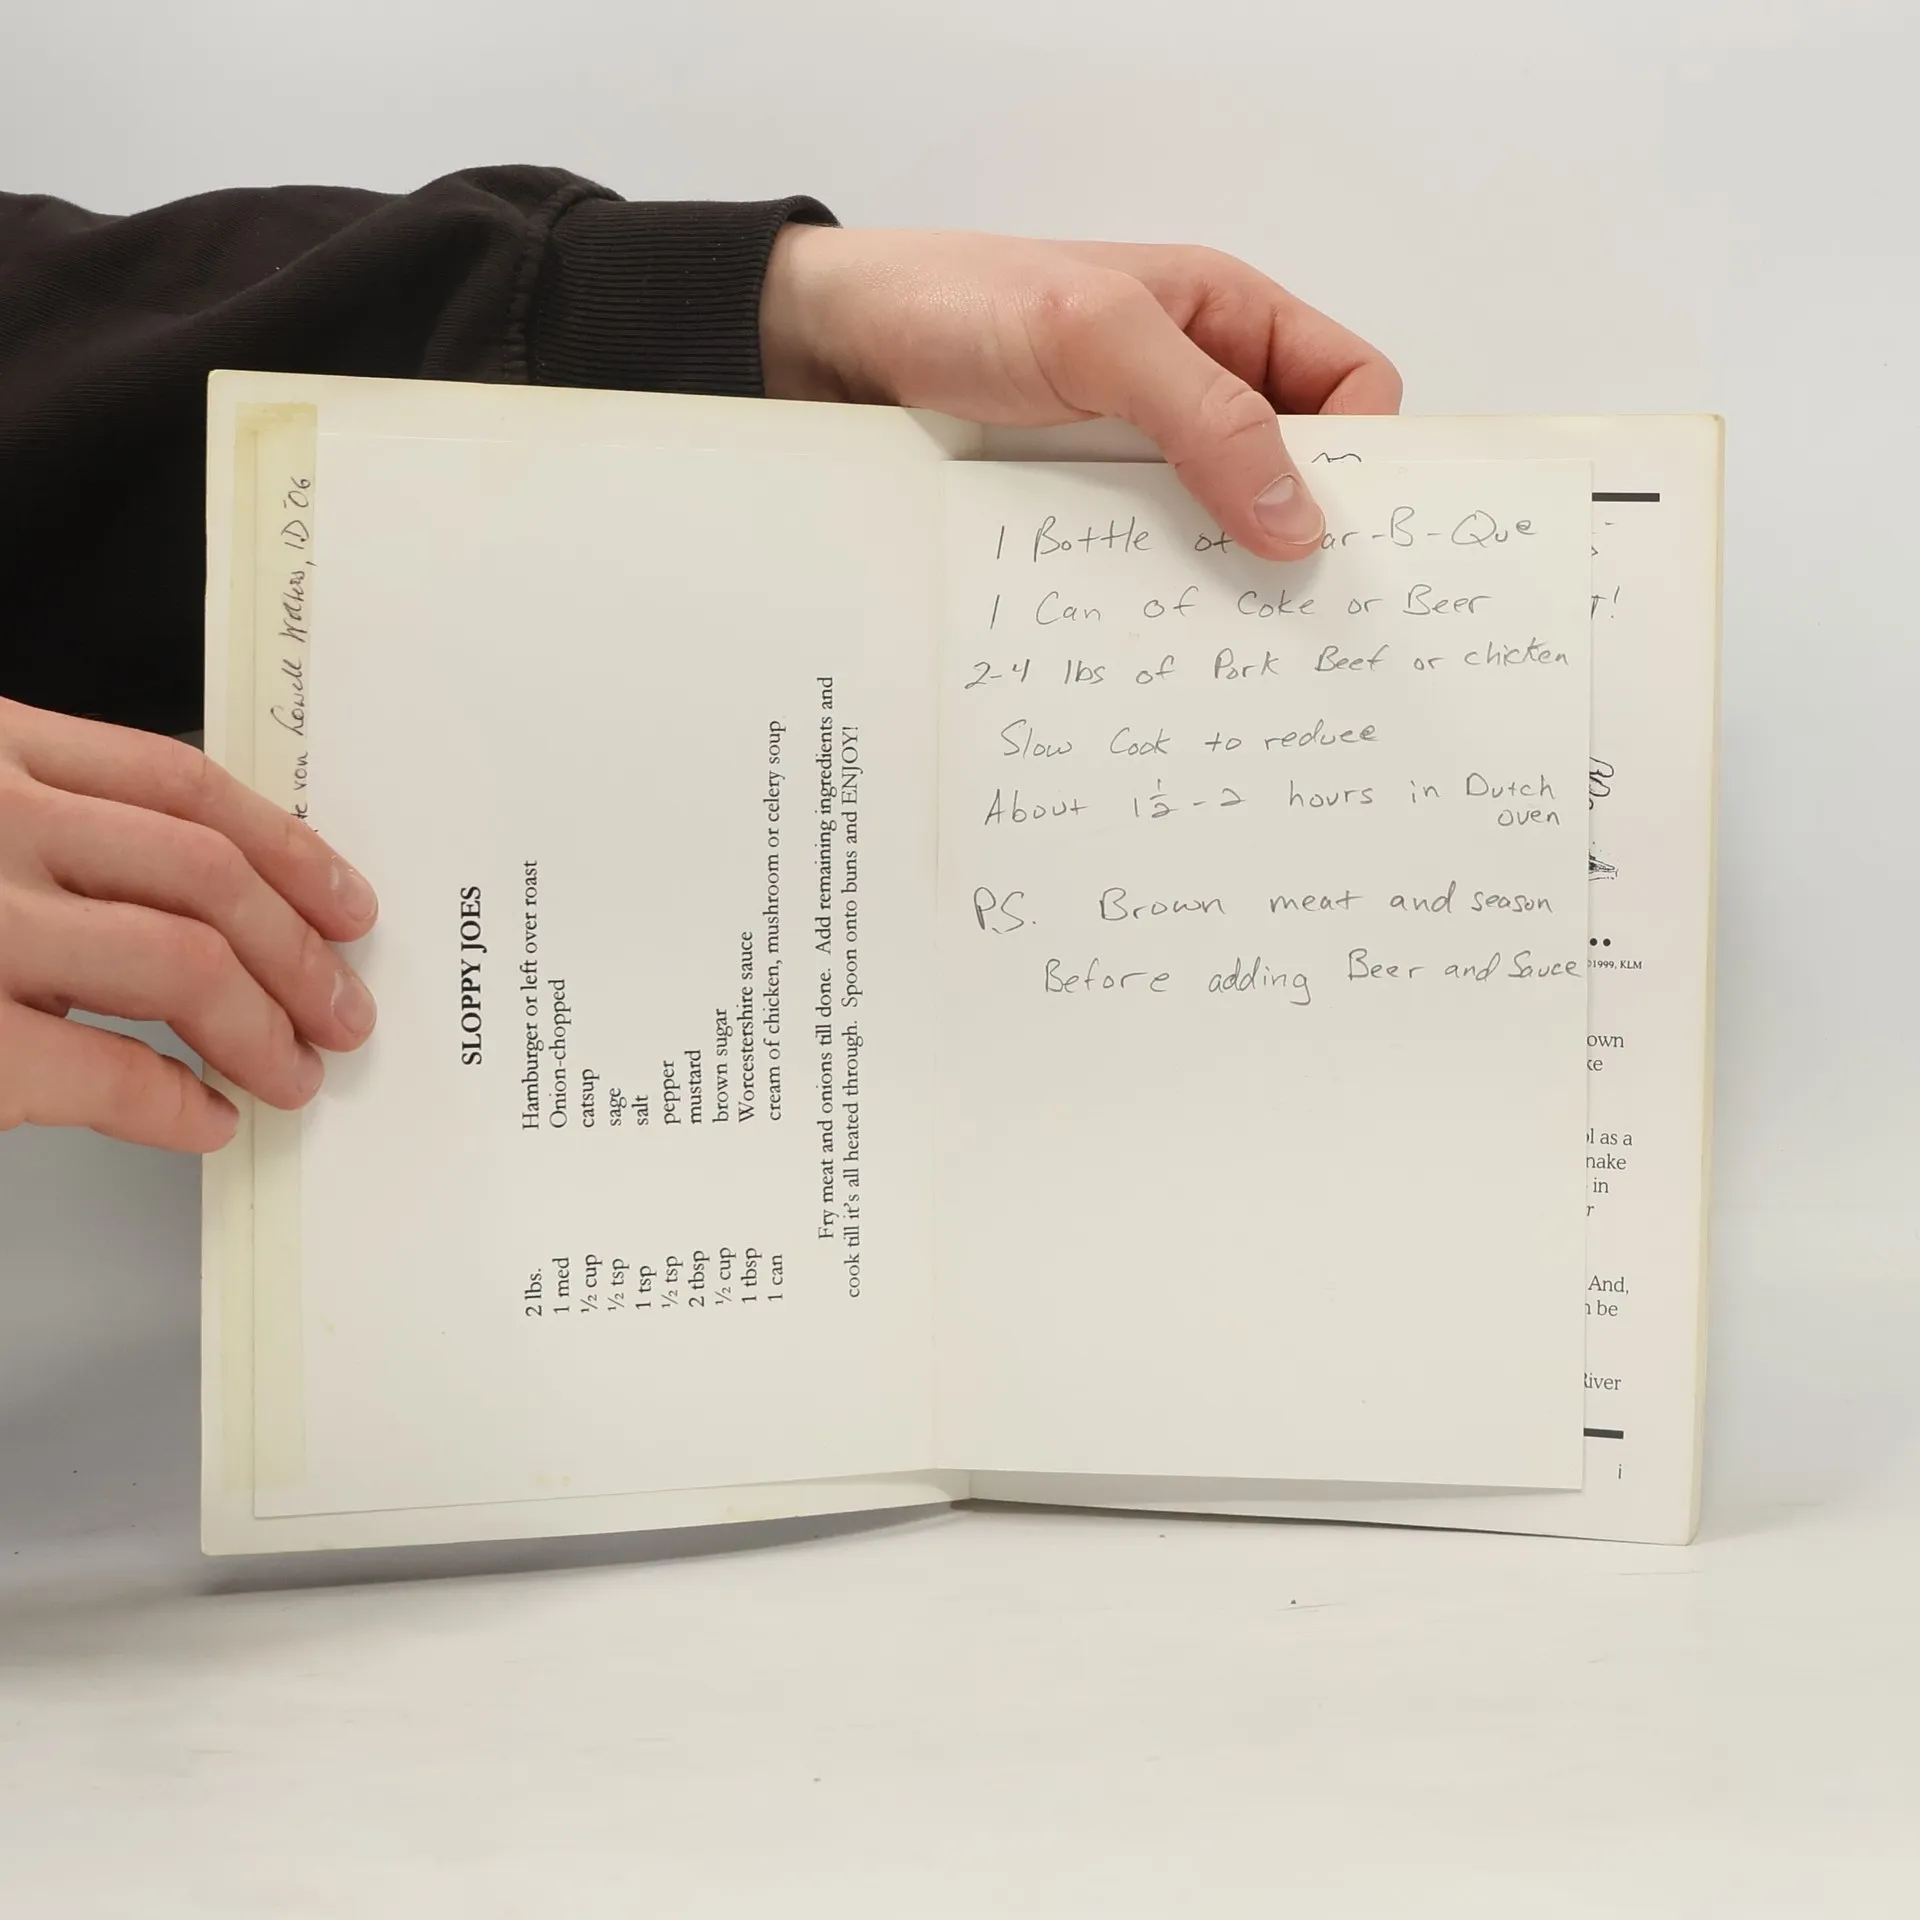 von Lowell Waters, ID '06
SLOPPY JOES
2 lbs. Hamburger or left over roast
1 med Onion-chopped
½ cup catsup
½ tsp sage
1 tsp salt
½ tsp pepper
2 tbsp mustard
½ cup brown sugar
1 tbsp Worcestershire sauce
1 can cream of chicken, mushroom or celery soup
Fry meat and onions till done. Add remaining ingredients and
cook till it's all heated through. Spoon onto buns and ENJOY!
1 Bottle of ar-B-Que
1 Can of Coke or Beer
2-4 lbs of Pork Beef or chicken
Slow Cook to reduce
About 1½-2 hours in Dutch
oven
P.S. Brown meat and season
Before adding Beer and Sauce
T!
1999, KLM
own
ke
l as a
nake
in
r
And,
be
River
i